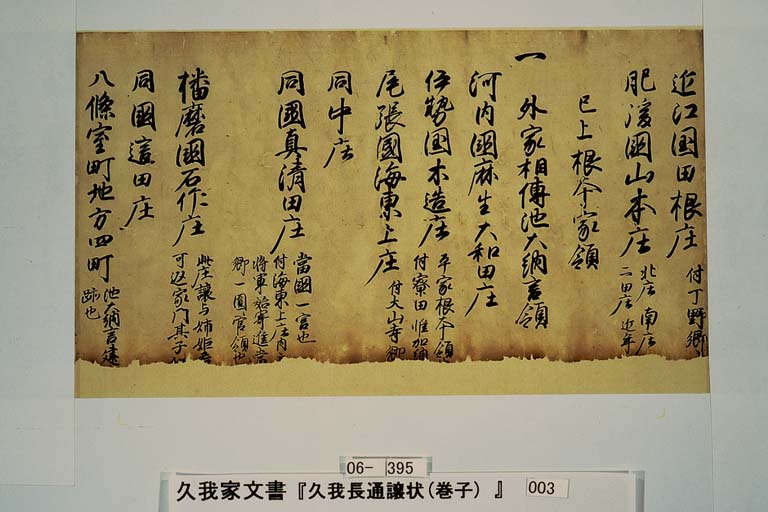 近江国田根庄 付丁野郷
肥後國山本庄 北庄南庄
二田庄近年
已上根本家領
一 外家相傳池大納言領
河内國麻生大和田庄
伊勢国木造庄 平家根本領
付寮田惟加納
尾張國海東上庄 付大山寺郷
同中庄
同國真清田庄 當國一宮也
付海東上庄内
将軍始寄進当
郷一圓管領也
播磨國石作庄 此庄譲与姉姫
可返家門其子
同國這田庄
八條室町地方四町 池大納言遺
跡也
06-395
久我家文書『久我長通譲状(巻子)』 003